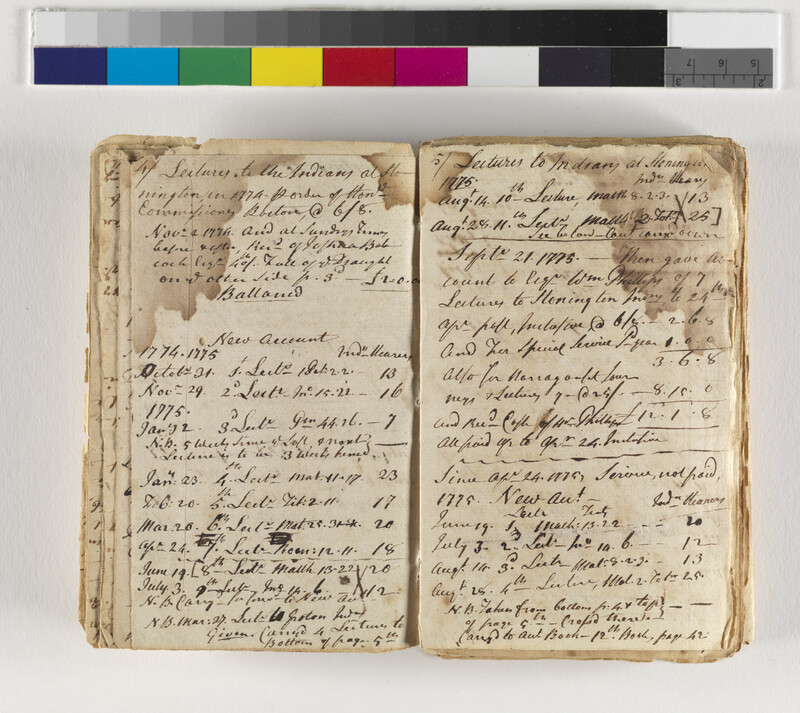 4/ Lectures to the Indians at Sto-
nington, in 1774. P order of Hond
Commissioners Boston, @ 6/8.
Novr 2 1774. And at Sundry Times
before & after, Recd of Joshua Bab
cock Esqr
on ye other Side p. 3d — £20.0.0
Balland
New Account
1774. 1775 Indn Hearers
Octobr 31. 1. Lectr 2.2 — 13
Novr 29. 2d Lectr Jno. 15.22 — 16
1775.
Jany 2 3d Lectr Gen 44.16. — 7
N.B. 5 Weeks Since ye Last, & next
Lecture is to be 3 Weeks hence.
Jany 23. 4th Lectr Mat. 11-17. 23
Feb: 20. 5th Lectr Tit: 2.11. 17
Mar. 20. 6th Lectr Mat. 25. 20
Apr. 24. 7th Lectr Rom: 12.11. 18
June 19. [8th Lectr Matth 13-22 20
July 3. 9th Lectr Jno 14.6. 12
N.B. Carry to New Act
N.B. Mar: 27 Lectr to Groton Indns
Given. Carryd 4 Lectures to
Bottom of page 5th
5/ Lectures to Indians at Stoningn
1775. Indn Hears
Augt 14. 10th Lecture, Matth 8.2.3. 13
Augt 28. 11. Lectr Matth 2. 25]
See below
Septr 21. 1775. — Then gave Ac-
count to Esqr Wm Phillips of 7
Lectures to Stonington Indns to 24th
Apr past, Inclusive @ 6/8. — 2.6.8
And for Special Service P year 1.0.0
3.6.8
Also for Narraganset Jour
neys & Lectures — 8.15.0
And Recd Cash of Wm Phillips 12.1.8
All paid up to Apr 24. Inclusive
Since Apr 24. 1775, Service, not paid,
1775. New Act — Indn Hearers
Lectr Texts
June 19. 1 Matth: 13.22 - - 20
July 3. 2d Lectr Jno 14.6. — 12
Augt 14. 3d Lectr Mat: 8.2.3. - 13
Augt 28. 4th Lecture, Mat. 2. 25.
N.B. Taken from bottom p. 4 & top
of page 5th — Crossd there
Carryd to Act Book — 12th Book, page 42